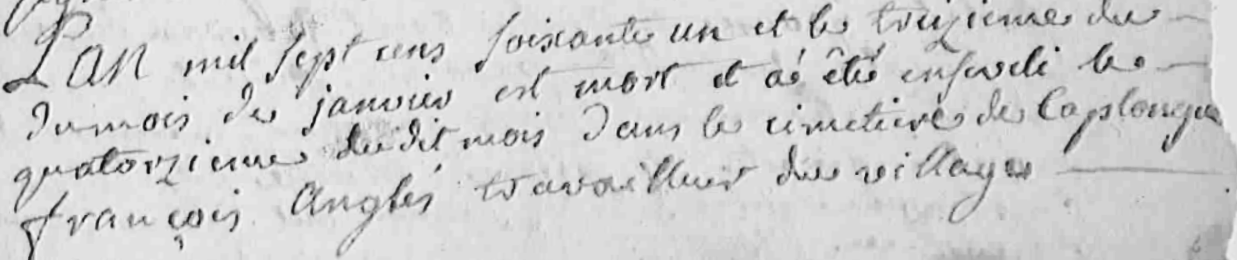 L'an mil sept cens soixante un et le treizieme du
du mois de janvier est mort et aé été enseveli le
quatorzieme du dit mois dans le cimetiére de Caplongue
françois Anglés travailleur du village